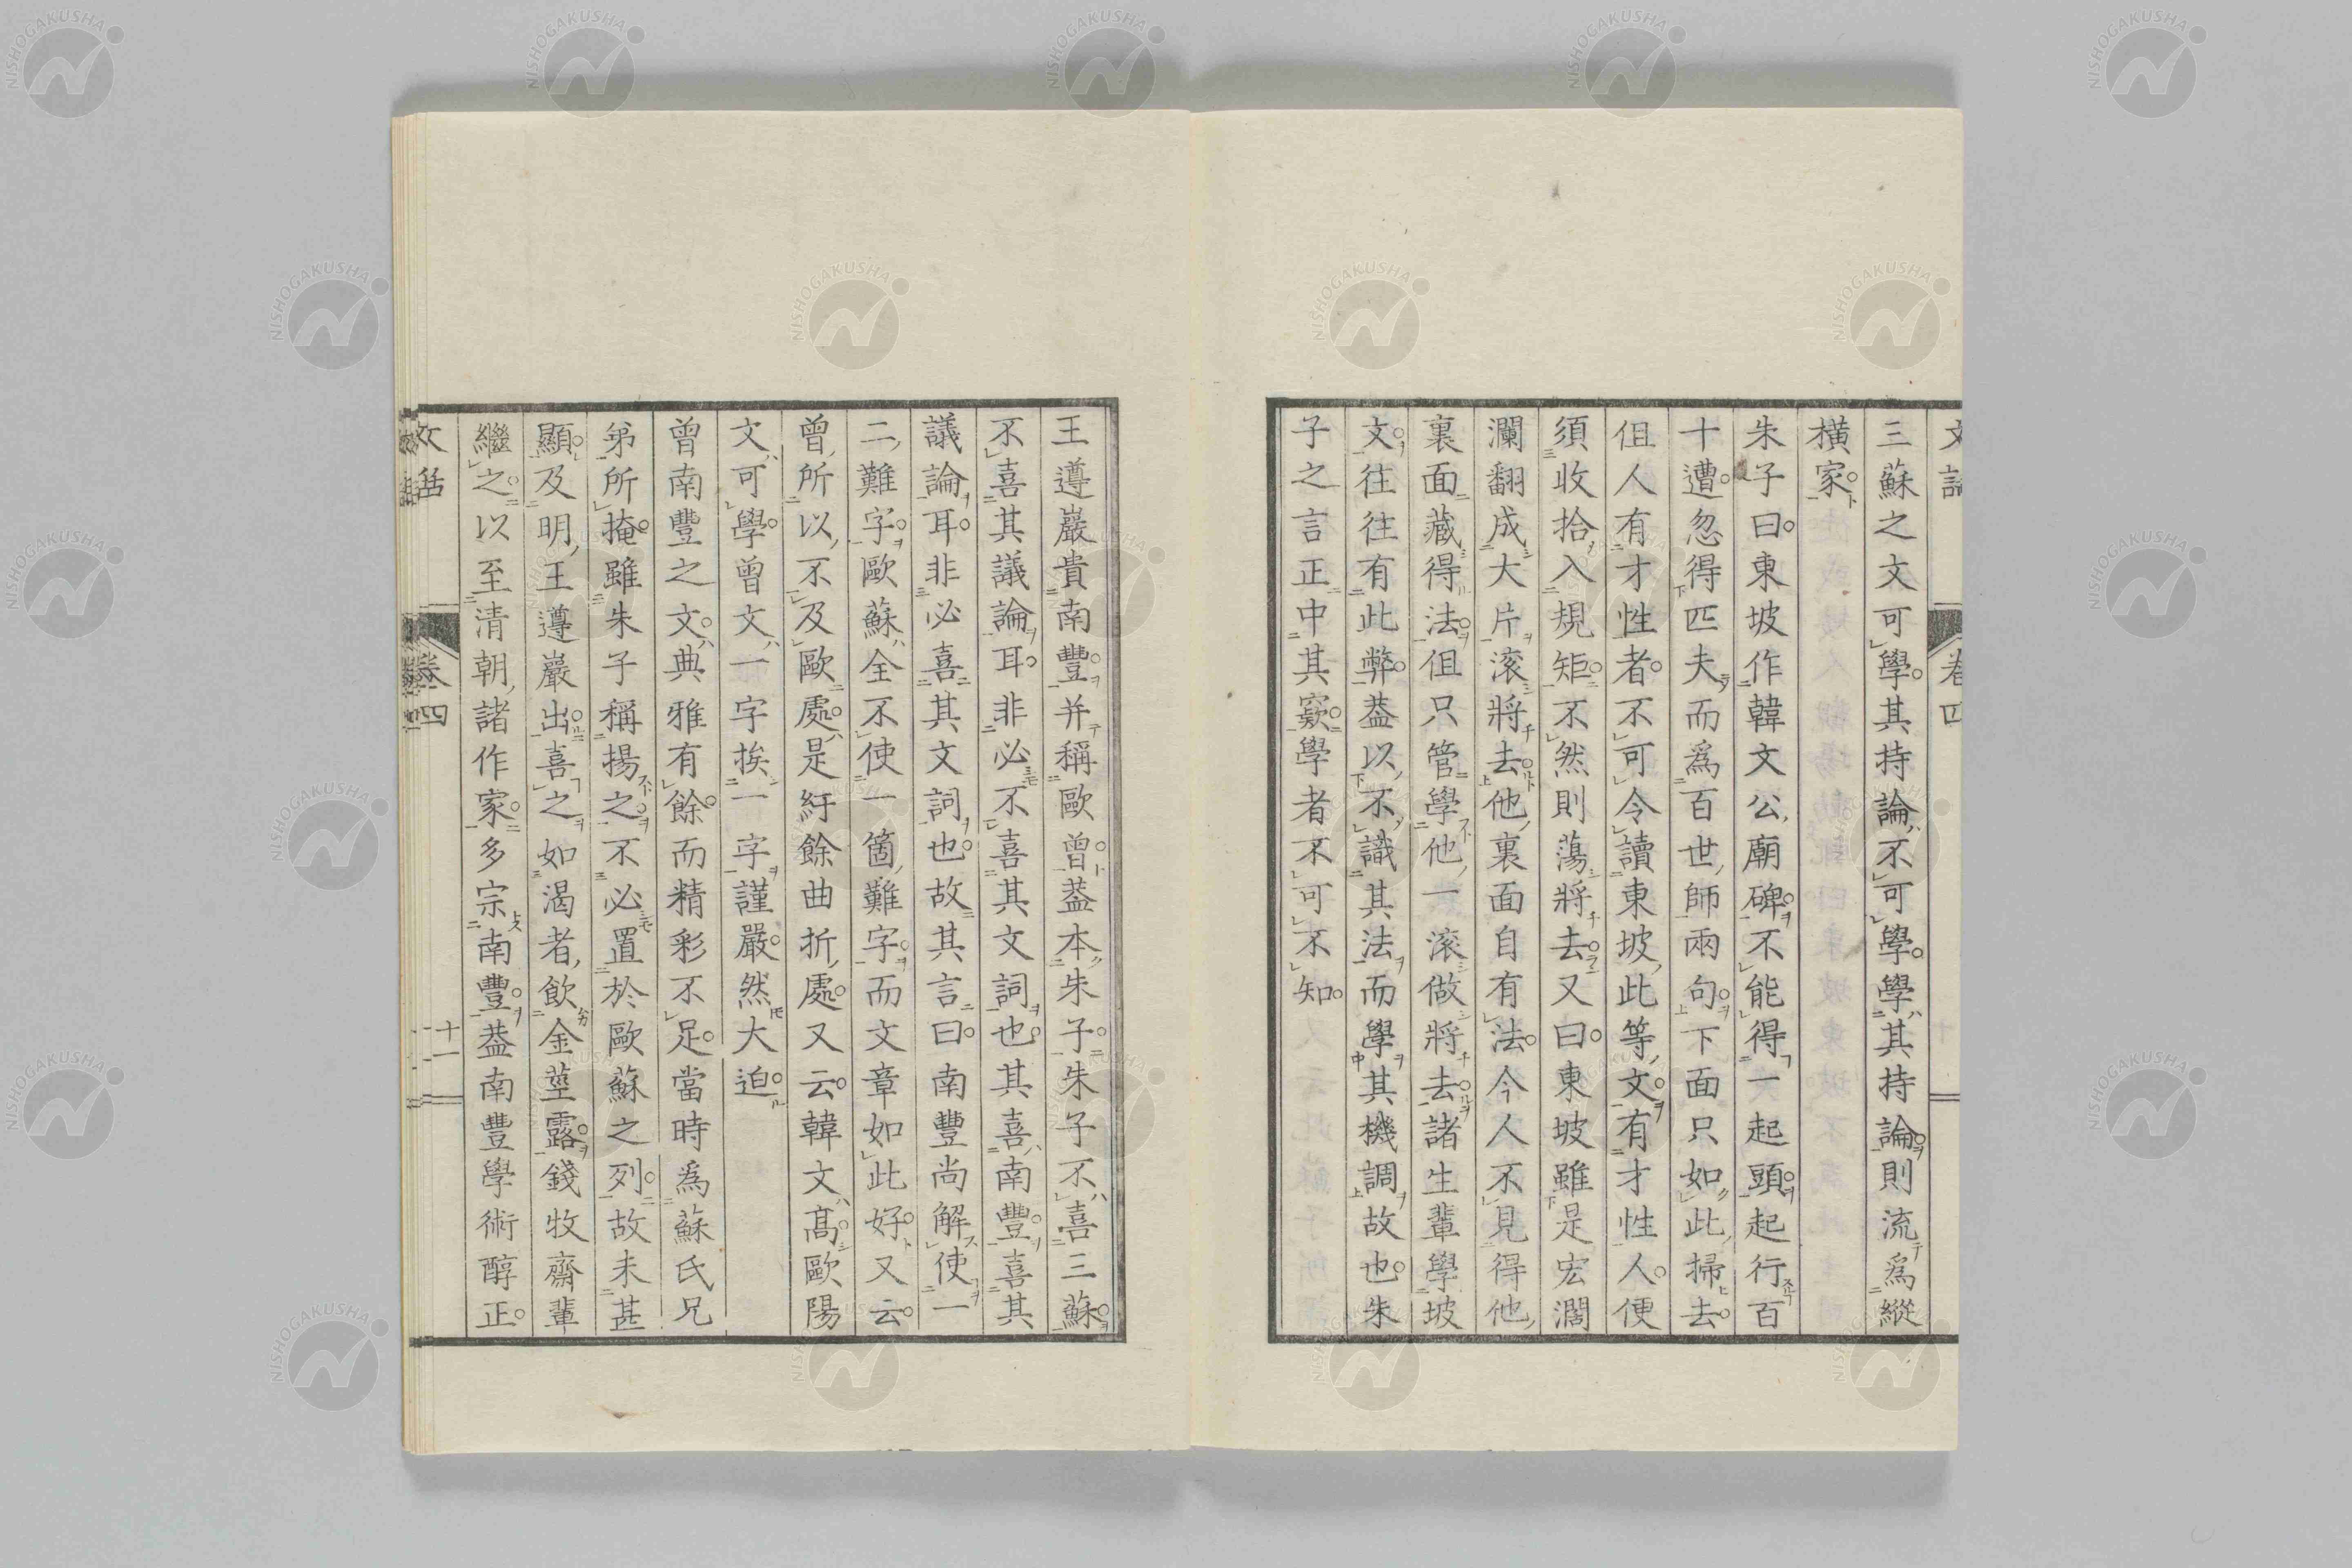 三蘇之文可學其持論不可學學其持論則流爲縱
橫家
朱子曰東坡作韓文公廟碑不能得一起頭起行百
十遭忽得匹夫而爲百世師兩句下面只如此掃去
但人有才性者不可令讀東坡此等文有才性人便
須收拾入規矩不然則蕩將去又曰東坡雖是宏濶
瀾翻成大片滚將去他裏面自有法今人不見得他
裏面藏得法但只管學他一滚做將去諸生輩學坡
文往往有此弊葢以不識其法而學其機調故也朱
子之言正中其窾學者不可不知
王遵巖貴南豐并稱歐曾葢本朱子朱子不喜三蘇
不喜其議論耳非必不喜其文詞也其喜南豐喜其
議論耳非必喜其文詞也故其言曰南豐尚解使一
二難字歐蘇全不使一箇難字而文章如此好又云
曾所以不及歐處是紆餘曲折處又云韓文高歐陽
文可學曾文一字挨一字謹嚴然大迫
曾南豐之文典雅有餘而精彩不足當時爲蘇氏兄
弟所掩雖朱子稱揚之不必置於歐蘇之列故未甚
顯及明王遵巖出喜之如渴者飲金莖露錢牧齋輩
繼之以至清朝諸作家多宗南豐葢南豐學術醇正
文話
卷四
十一
NISHOGAKUSHA